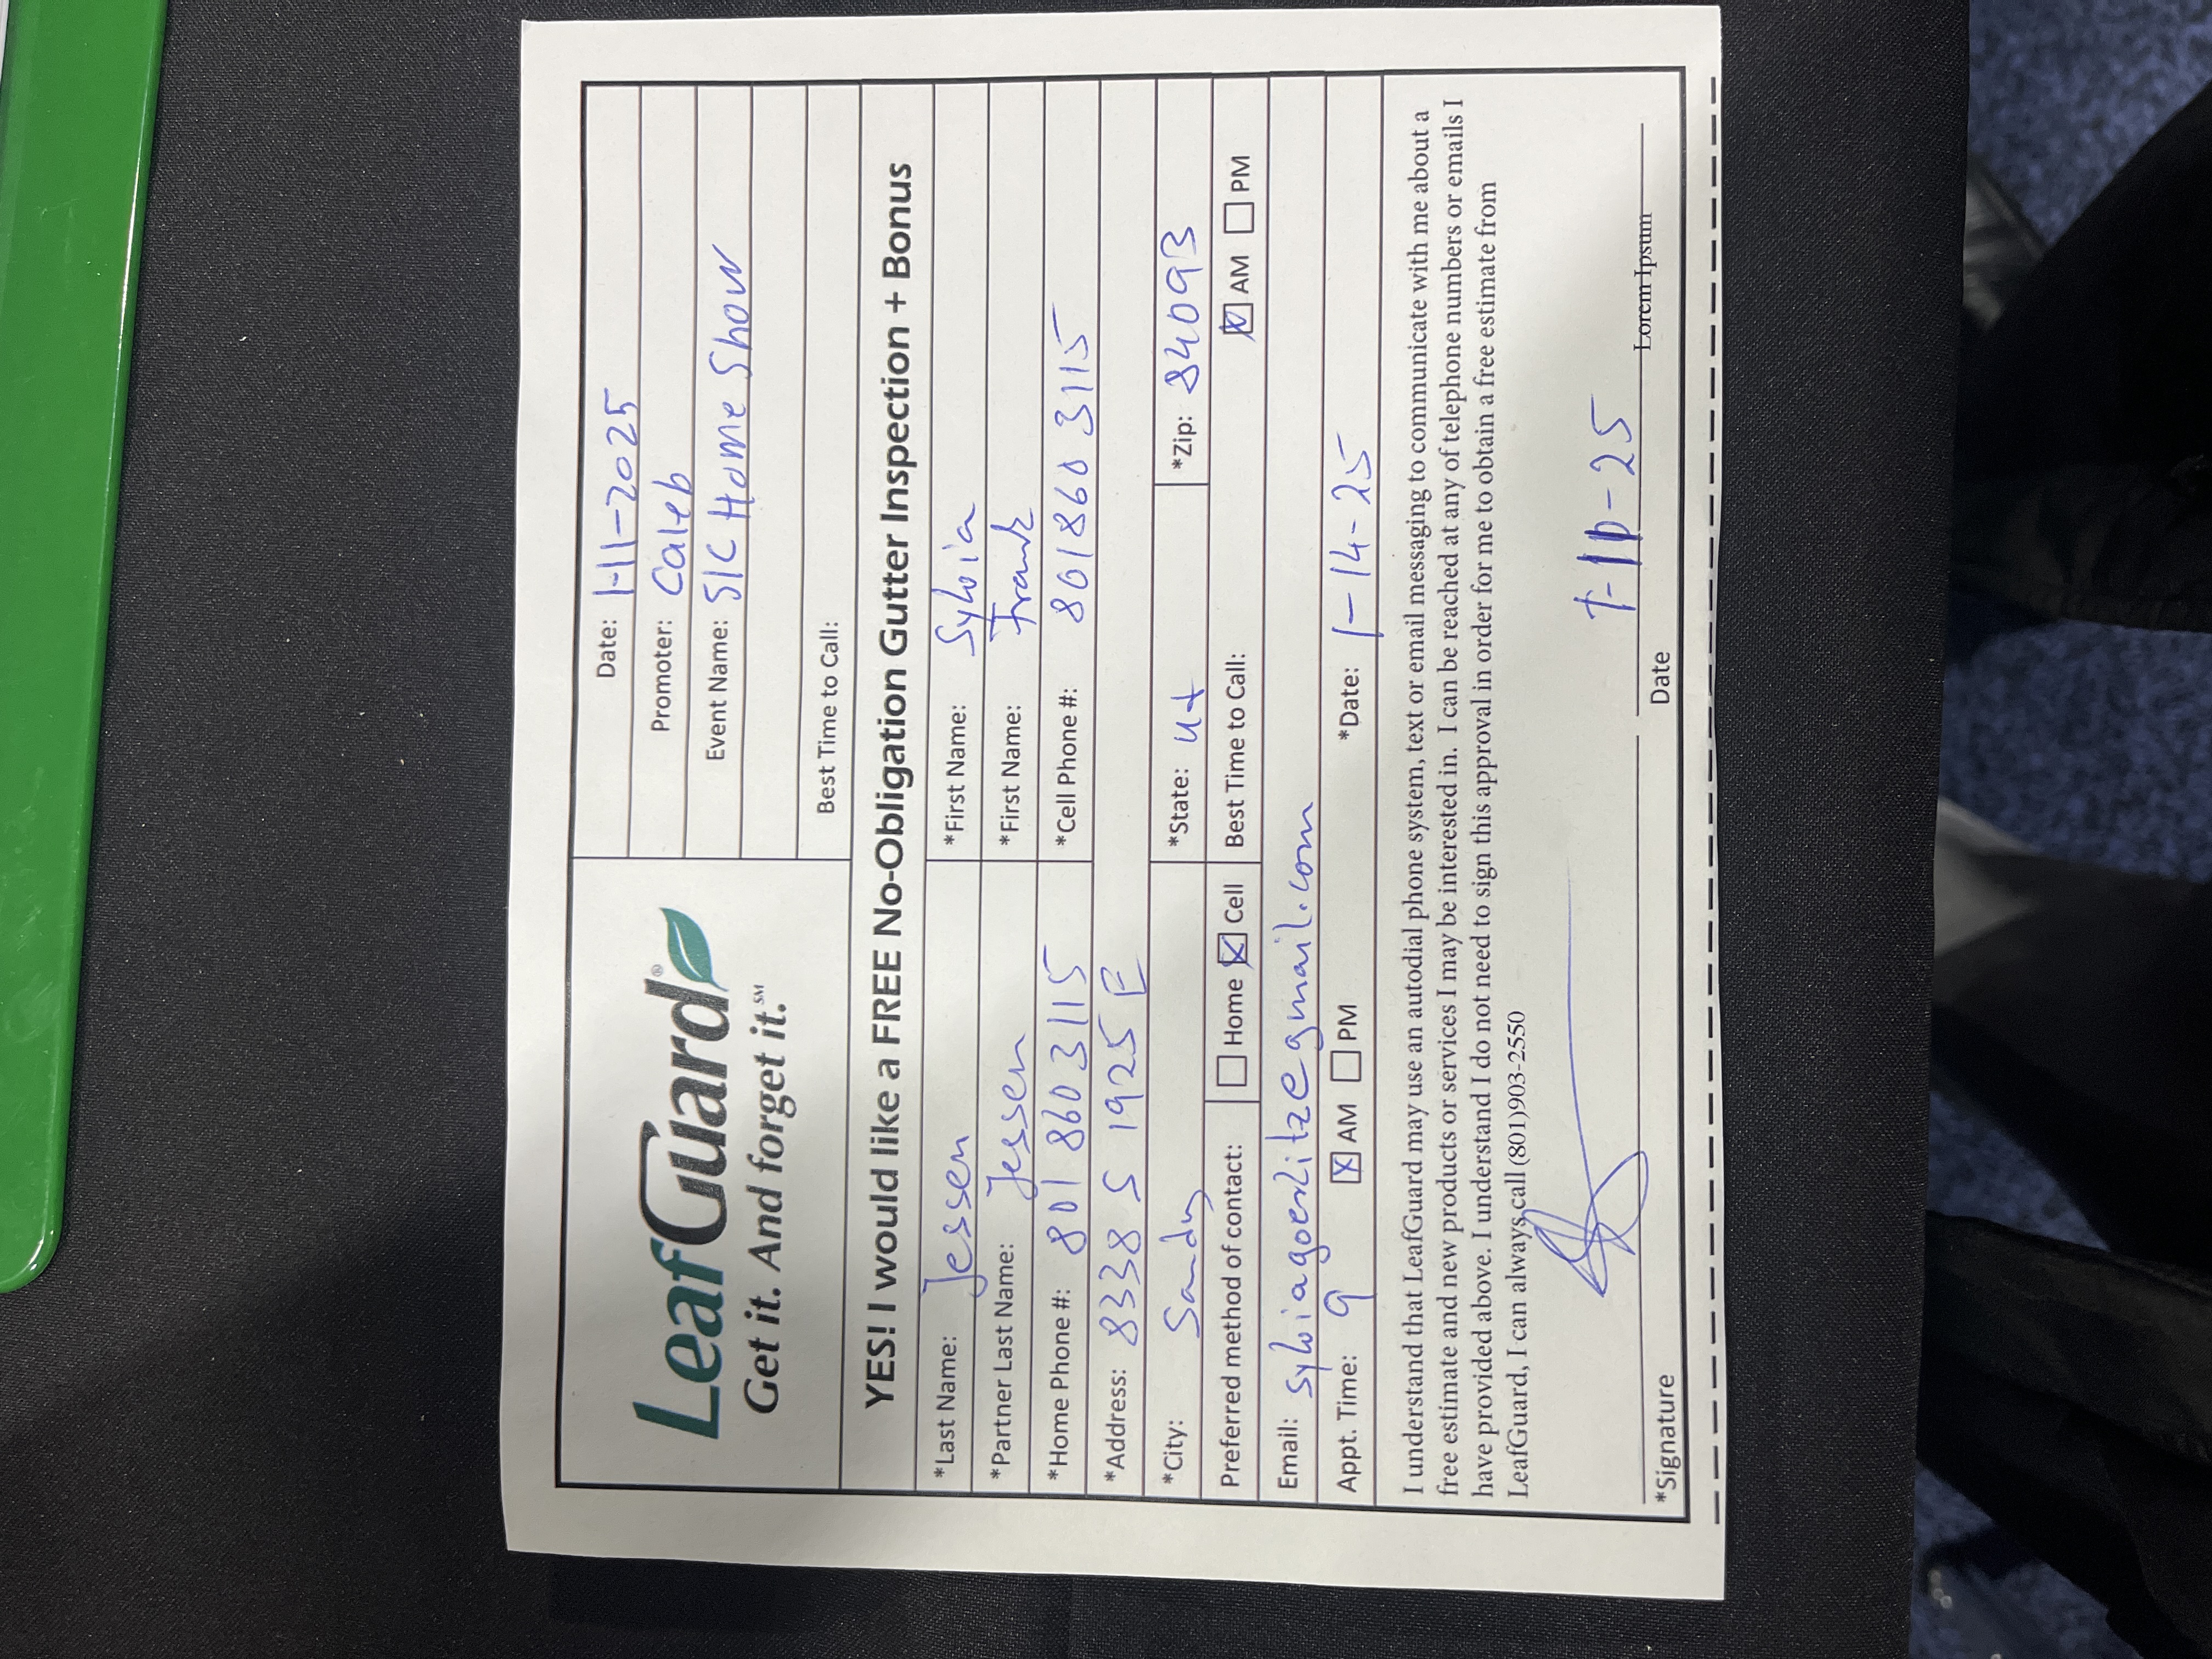 Date: 1-11-2025
Promoter: Caleb
Event Name: SlC Home Show
Best Time to Call:
LeafGuard®
Get it. And forget it.℠
YES! I would like a FREE No-Obligation Gutter Inspection + Bonus
*Last Name: Jessen *First Name: Sylvia
*Partner Last Name: Jessen *First Name: Frank
*Home Phone #: 801 860 3115 *Cell Phone #: 801860 3115
*Address: 8338 S 1925 E
*City: Sandy *State: Ut *Zip: 84093
Preferred method of contact: Home Cell Best Time to Call: AM PM
Email: sylviagoerlitz@gmail.com
Appt. Time: 9 AM PM *Date: 1-14-25
I understand that LeafGuard may use an autodial phone system, text or email messaging to communicate with me about a
free estimate and new products or services I may be interested in. I can be reached at any of telephone numbers or emails I
have provided above. I understand I do not need to sign this approval in order for me to obtain a free estimate from
LeafGuard, I can always call (801)903-2550
-25
Lorem Ipsum
*Signature Date